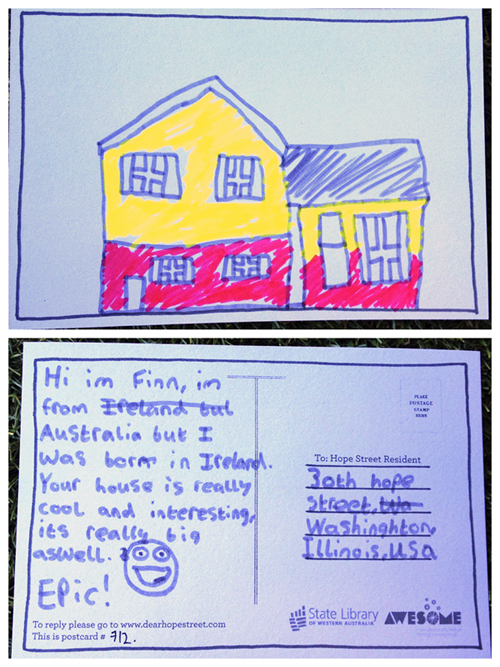 Hi im Finn, im
from Ireland but
Australia but I
was born in Ireland.
Your house is really
cool and interesting,
its really big
aswell.
Epic!
To reply please go to www.dearhopestreet.com
This is postcard # 712.
PLACE
POSTAGE
STAMP
HERE
To: Hope Street Resident
30th hope
Street,
Washinghton,
Illinois, USA
State Library
OF WESTERN AUSTRALIA
AWESOME